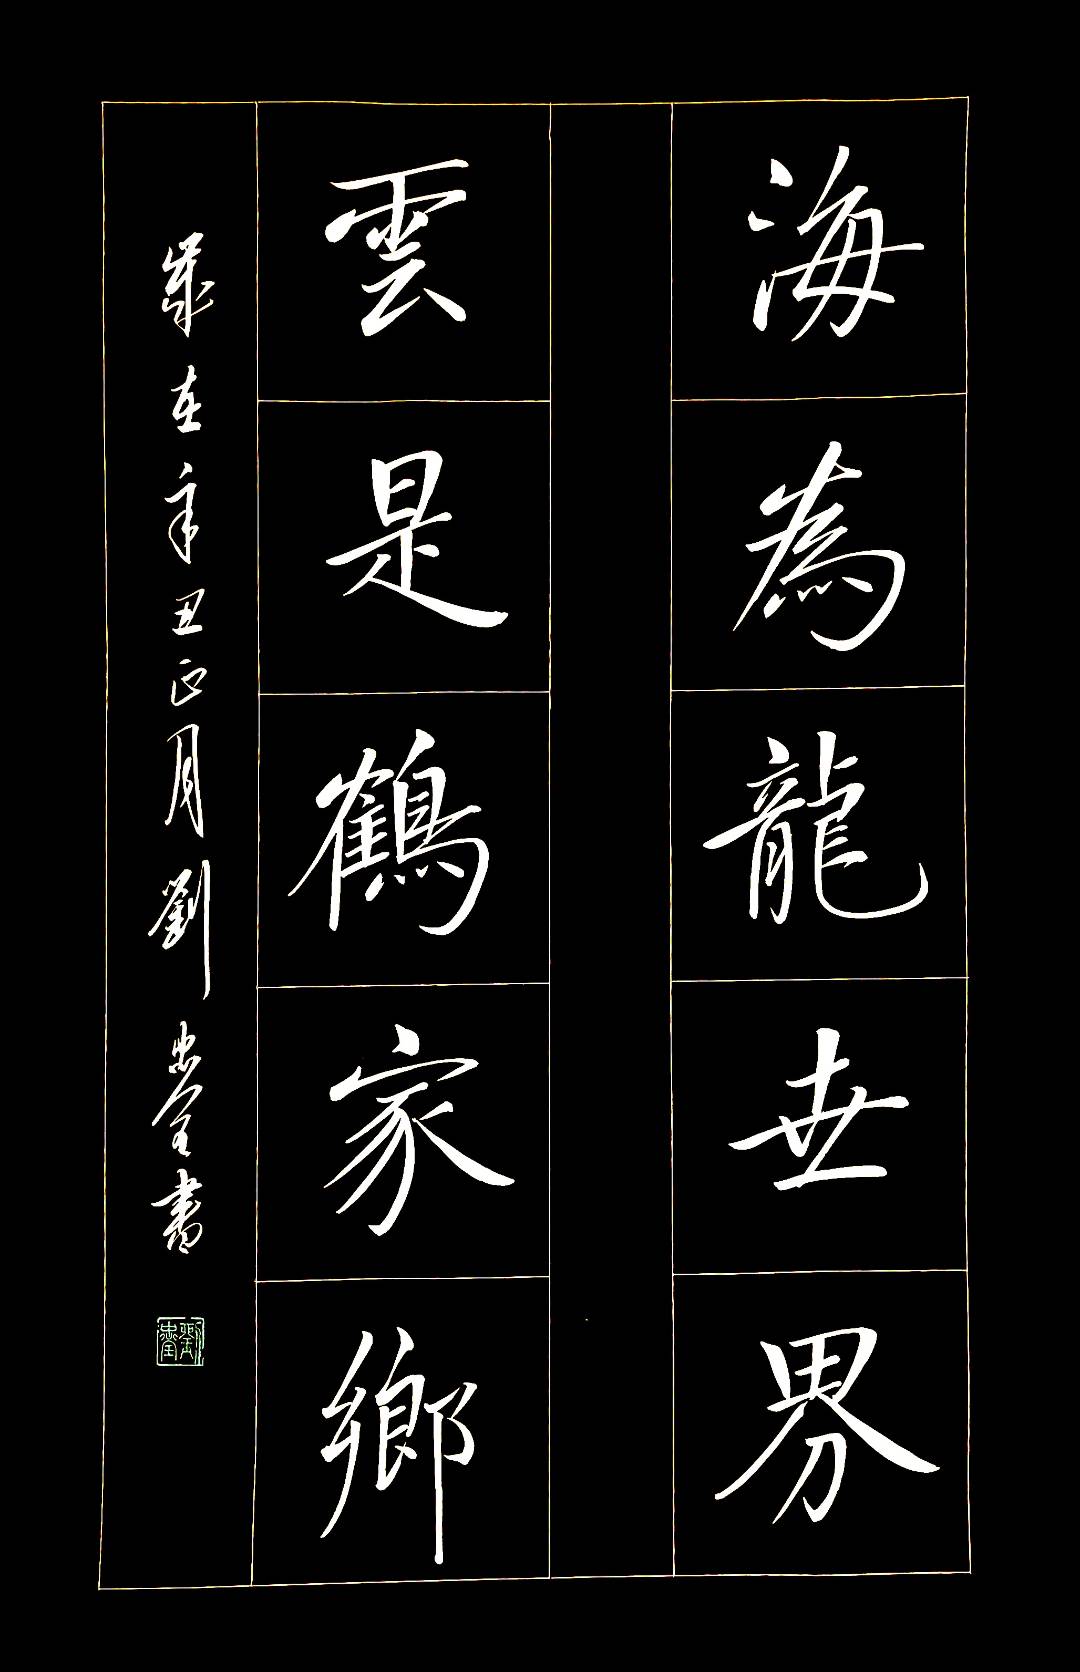 海為龍世界
雲是鶴家鄉
歲在辛丑正月劉忠全書